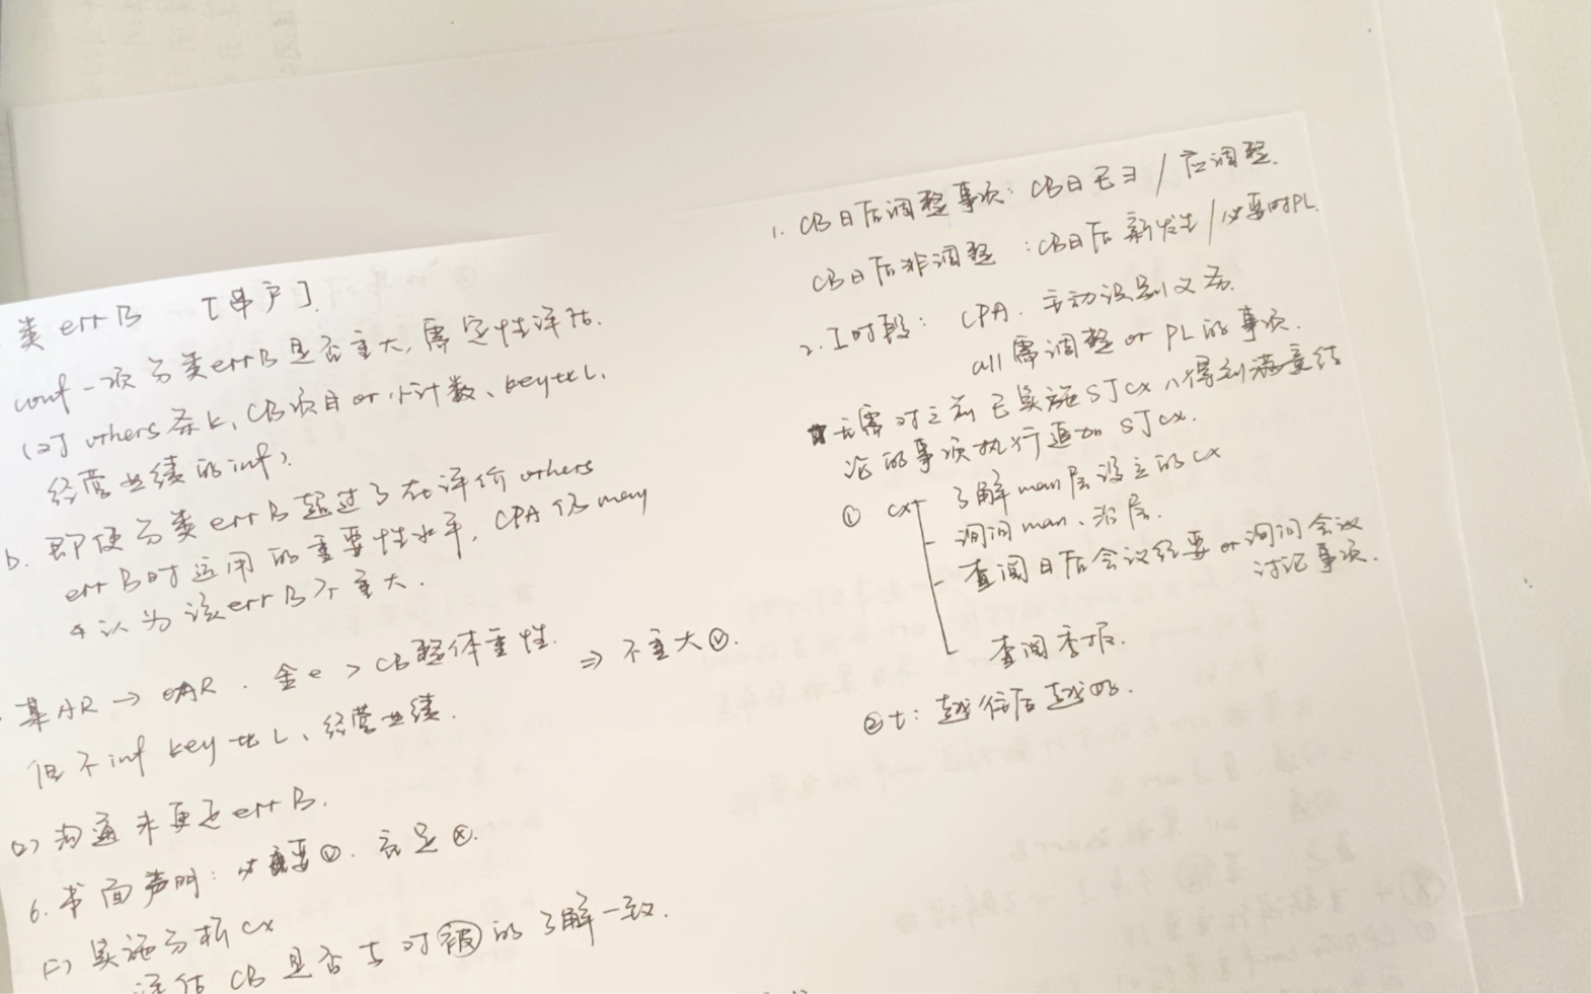 类errB [串户].
conf一项分类errB是否重大,需定性评估.
(对others条k,CB项目or小计数、key比L.
经营业绩的inf).
b. 即使分类errB超过了在评价others
errB时运用的重要性水平,CPA仍may
认为该errB不重大.
某AR→OAR. 金e>CB整体重性. ⇒不重大
但不inf key比L、经营业绩.
沟通未更正errB.
6.书面声明:必要 充足
实施分析cx
评估CB是否与对被的了解一致.
1. CB日后调整事项:CB日已∃/应调整.
CB日后非调整:CB日后新发生/必要时PL.
2.I时段: CPA.主动识别义务.
all需调整or PL的事项.
无需对之前已实施SJcx∧得到满意结
论的事项执行追加SJcx.
① cx 了解man层设立的cx
询问man、治层.
查阅日后会议纪要or询问会议
讨论事项.
查阅季报.
②t:越往后越